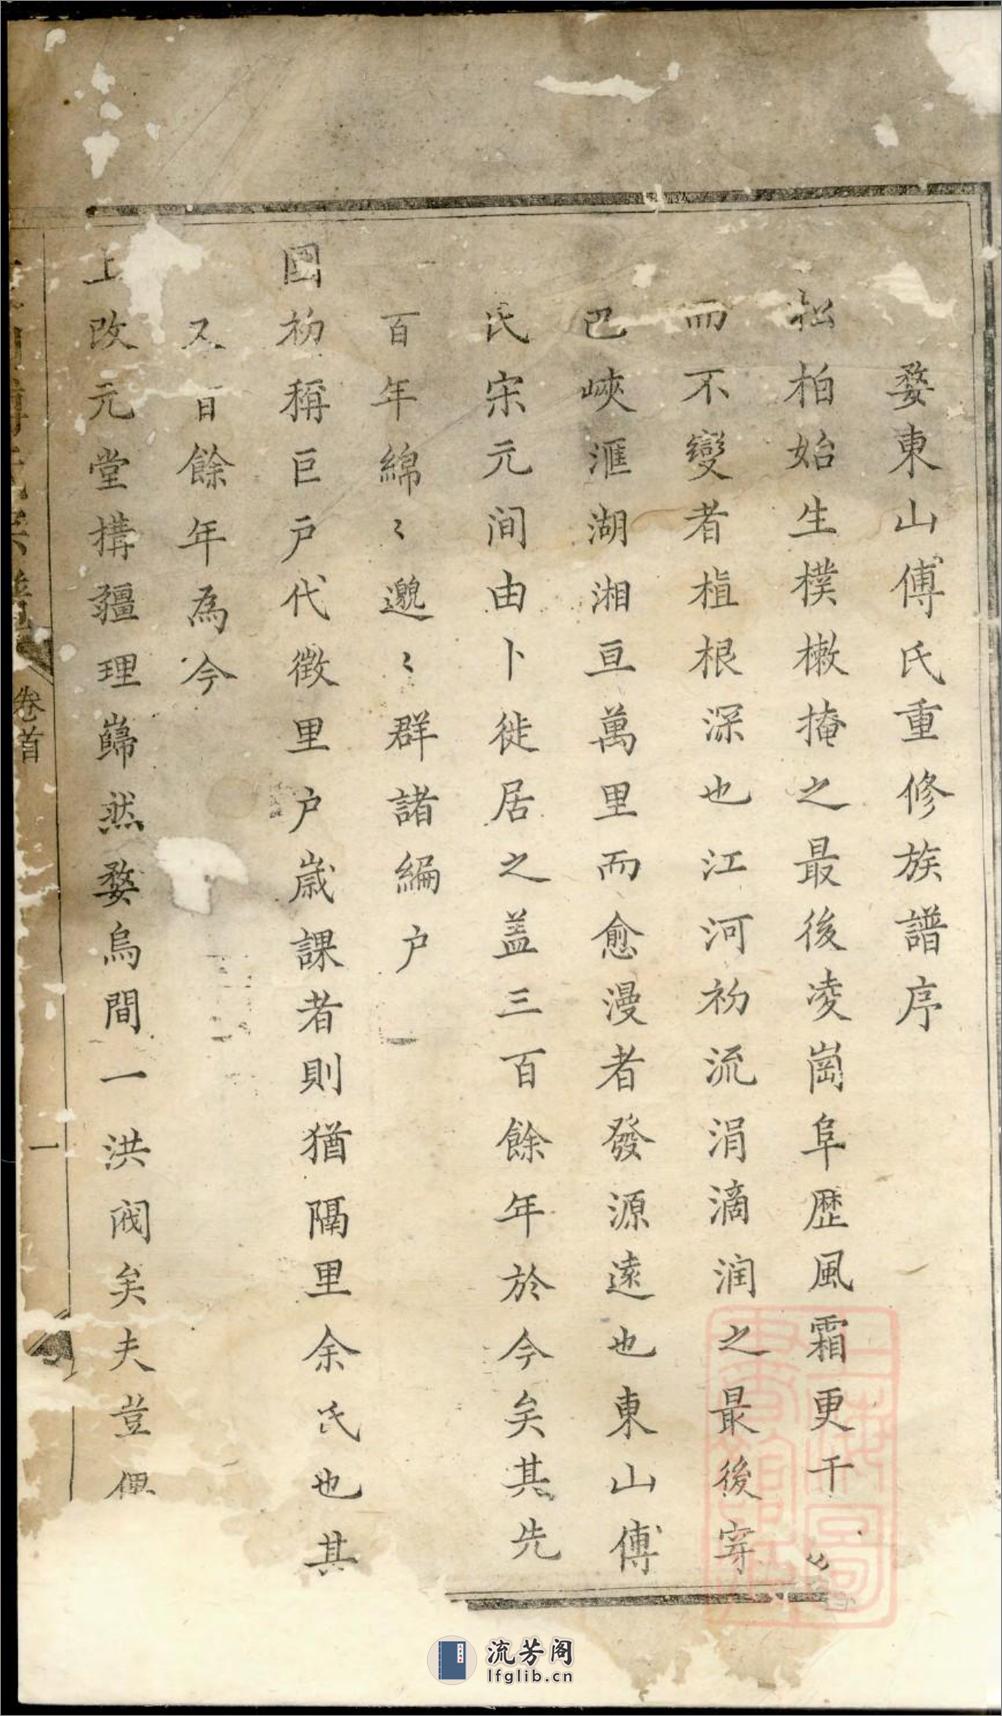 婺東山傅氏重修族譜序
松柏始生樸樕掩之最後凌崗阜歷風霜更千
而不變者植根深也江河初流涓滴润之最後穿
巴峽滙湖湘亘萬里而愈漫者發源遠也東山傅
氏宋元间由卜徙居之盖三百餘年於今矣其先
百年綿〻邈〻群諸編户
國初稱巨戸代徵里户歲課者則猶隔里余氏也其
又百餘年為今
上改元堂搆疆理巋然婺烏間一洪閥矣夫豈偶
卷首
一
流芳阁
lfglib.cn